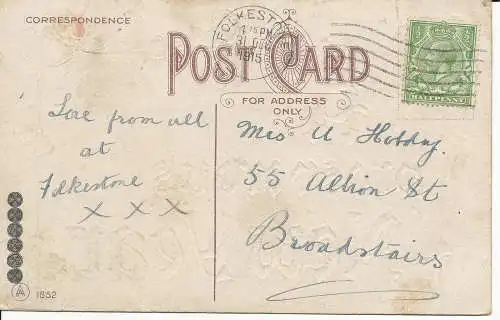 CORRESPONDENCE
POST CARD
FOR ADDRESS
ONLY
FOLKESTONE
31 DEC
1915
HALFPENNY
Love from all
at
Folkestone
X X X
Mrs A Hobday
55 Albion St
Broadstairs
1852